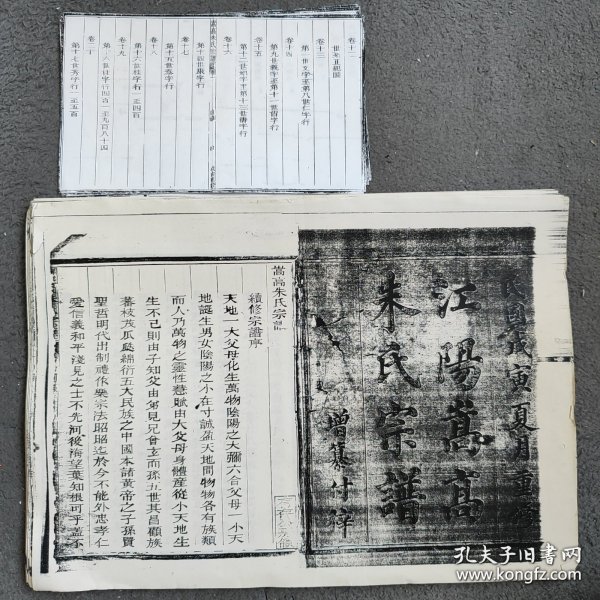 卷十二
世系正視圖
卷十三
第一世文字至第八世仁字行
卷十四
第九世義字至第十一世智字行
卷十五
第十二世如字至第十三世舞字行
卷十六
第十四世康字行
卷十七
第十五世泰字行
卷十八
第十六世桂字行一至四百
卷十九
第十六世桂字行四百一至九百八十四
卷二十
第十七世芳字行一至五百
民國戊寅夏月重
江陽嵩高
朱氏宗譜
增纂付梓
嵩高朱氏宗
續修宗譜序
天地一大父母化生萬物陰陽之大彌六合父母一小天
地誕生男女陰陽之小在寸誠盈天地間物物各有族類
而人乃萬物之靈性慧賦由大父母身體產從小天地生
生不已則由子知父由弟見兄會玄而孫五世其昌顧族
蕃枝茂瓜瓞綿衍五大民族之中國本諸黃帝之子孫賢
聖哲明代出制禮作樂宗法昭昭迄於今不能外忠孝仁
愛信義和平淺見之士不先河後海望葉知根可乎蓋不
孔夫子旧书网
www.kongfz.com